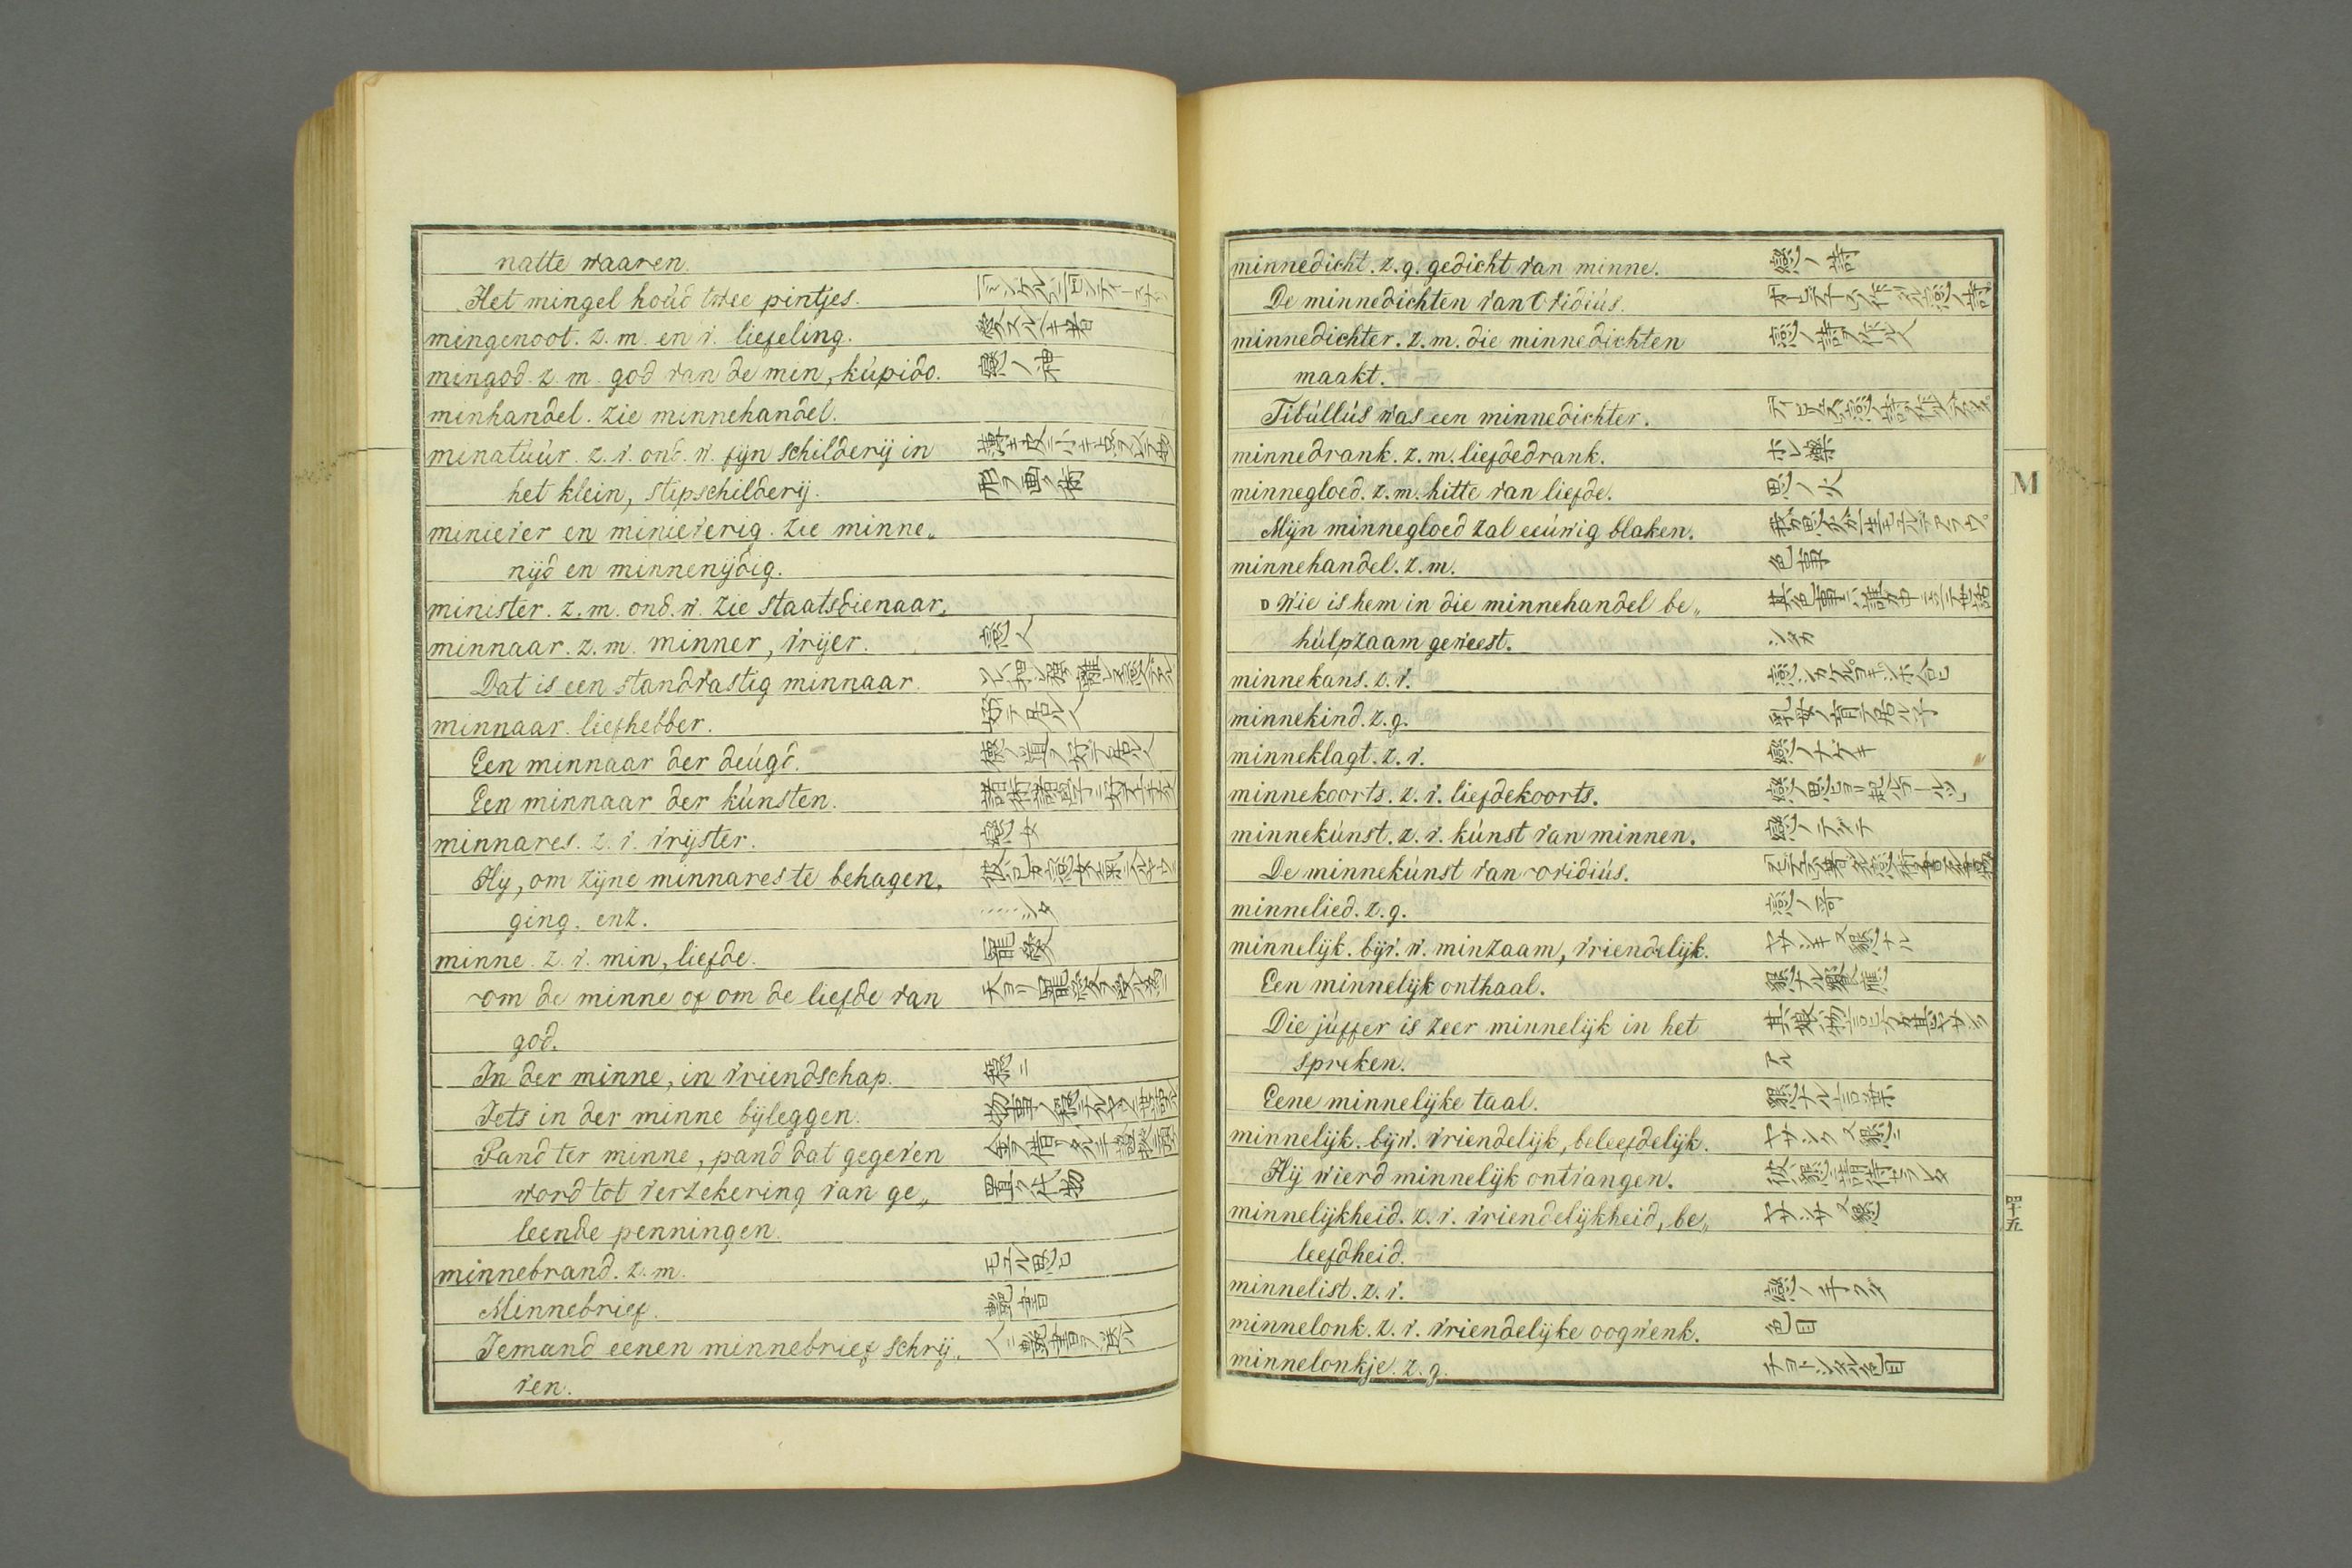 natte waaren.
Het mingel hoúd twee pintjes.
mingenoot. z. m. en v. liefeling. 愛スル若者
mingod. z. m. god van de min, kúpido. 戀ノ神
minhandel. zie minnehandel.
minatúúr. z. v. onb. w. fijn schilderij in
het klein, stipschilderij. 形ヲ画ク術
miniever en minieverig. zie minne„
nijd en minnenijdig.
minister. z. m. ond. w. zie staatsdienaar.
minnaar. z. m. minner, vrijer. 戀人
Dat is een standvastig minnaar.
minnaar. liefhebber. 好テ居ル人
Een minnaar der deúgd. 徳ノ道ヲ好テ居ル人
Een minnaar der kúnsten.
minnares. z. v. vrijster. 戀女
Hij, om zijne minnares te behagen,
ging. enz. ‥‥シタ
minne. z. v. min, liefde. 寵愛
om de minne of om de liefde van 天ヨリ寵愛ヲ受ル為ニ
god.
In der minne, in vriendschap. 穏ニ
Iets in der minne bijleggen.
Pand ter minne, pand dat gegeven
word tot verzekering van ge„ 置ク代物
leende penningen.
minnebrand. z. m. モエル思ヒ
Minnebrief. 艶書
Iemand eenen minnebrief schrij„ 人ニ艶書ヲ送ル
ven.
minnedicht. z. g. gedicht van minne. 戀ノ詩
De minnedichten van Ovidiús.
minnedichter. z. m. die minnedichten 戀ノ詩ヲ作ル人
maakt.
Tibúllús was een minnedichter.
minnedrank. z. m. liefdedrank. ホレ薬
minnegloed. z. m. hitte van liefde. 思ノ火
Mijn minnegloed zal eeúwig blaken.
minnehandel. z. m. 色事
Wie is hem in die minnehandel be„
húlpzaam geweest. シタカ
minnekans. z. v.
minnekind. z. g. 乳母ノ育テ居ル子
minneklagt. z. v. 戀ノナゲキ
minnekoorts. z. v. liefdekoorts.
minnekúnst. z. v. kúnst van minnen. 戀ノテダテ
De minnekúnst van ovidiús.
minnelied. z. g. 戀ノ哥
minnelijk. bijv. w. minzaam, vriendelijk. ヤサシキ又懇ナル
Een minnelijk onthaal. 懇ナル饗應
Die júffer is zeer minnelijk in het
spreken. アル
Eene minnelijke taal. 懇ナル言葉
minnelijk. bijw. vriendelijk, beleefdelijk. ヤサシク又懇ニ
Hij wierd minnelijk ontvangen.
minnelijkheid. z. v. vriendelijkheid, be„ ヤサシサ又懇
leefdheid.
minnelist. z. v. 戀ノ手クダ
minnelonk. z. v. vriendelijke oogwenk. 色目
minnelonkje. z. g. チヨトシタル色目
M
四十五